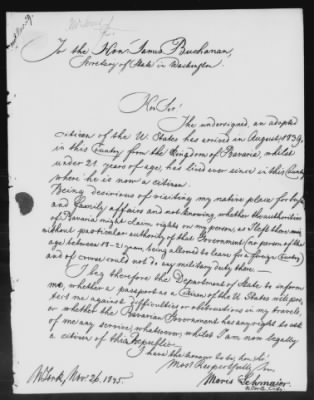 To the Hon. James Buchanan,
Secretary of State in Washington.
Hon. Sir!
The undersigned, an adopted
citizen of the U. States has arrived in August, 1839,
in this Country from the Kingdom of Bavaria, whilst
under 21 years of age, has lived ever since in this Country
where he is now a citizen.
Being desirous of visiting my native place for business
and family affairs and not knowing, whether the authorities
of Bavaria might claim rights on my person, as I left there
without particular authority of that Government (no person of the
age between 18-21 years, being allowed to leave for a foreign Country)
and of course could not do any military duty there —
I beg therefore the Department of State to inform
me, whether a passport as a Citizen of the U. States will pro-
tect me against difficulties or obstructions in my travels,
or whether the Bavarian Government has any right to ask
of me any services whatsoever, whilst I am now legally
a citizen of this Republic.
I have the honor to be, hon. Sir!
Most Respectfully
Moris Schmaier
N. York, Nov. 26. 1845.